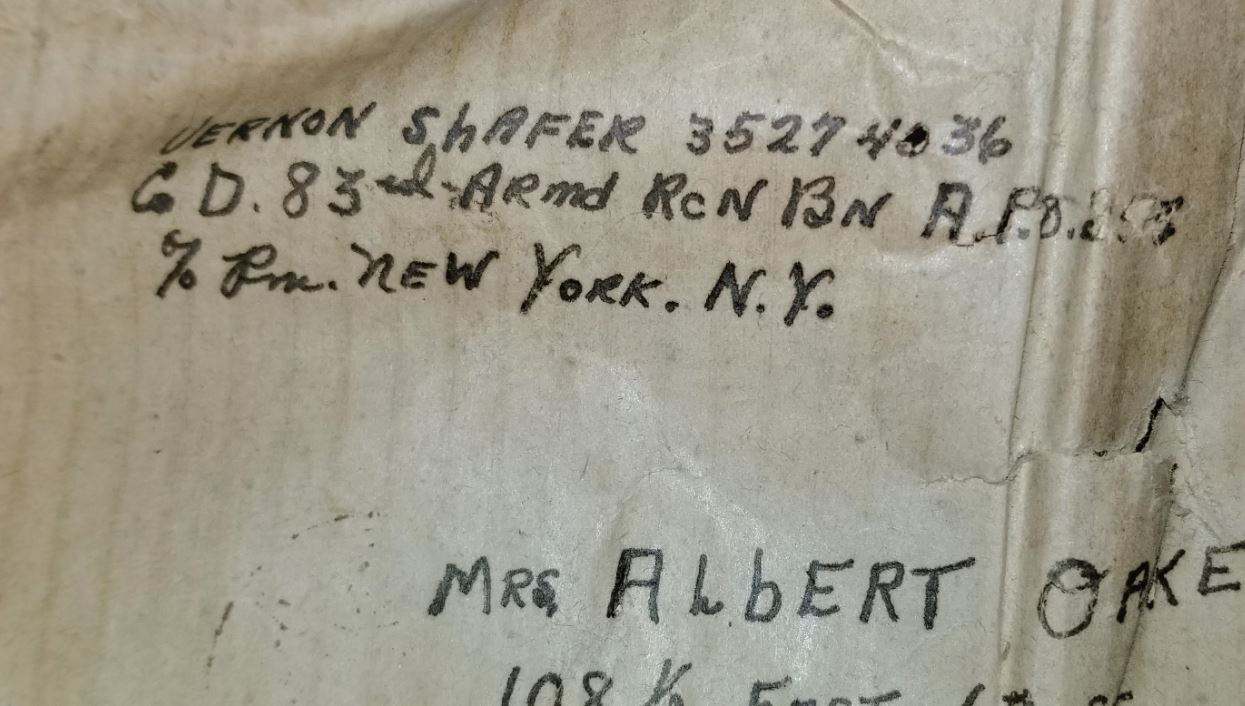 VERNON ShAFER 35274036
Co D. 83rd ARmd RcN BN A.P.O.
% Pm. NEW YORK. N.Y.
MRS ALbERT OAKE
108 ½